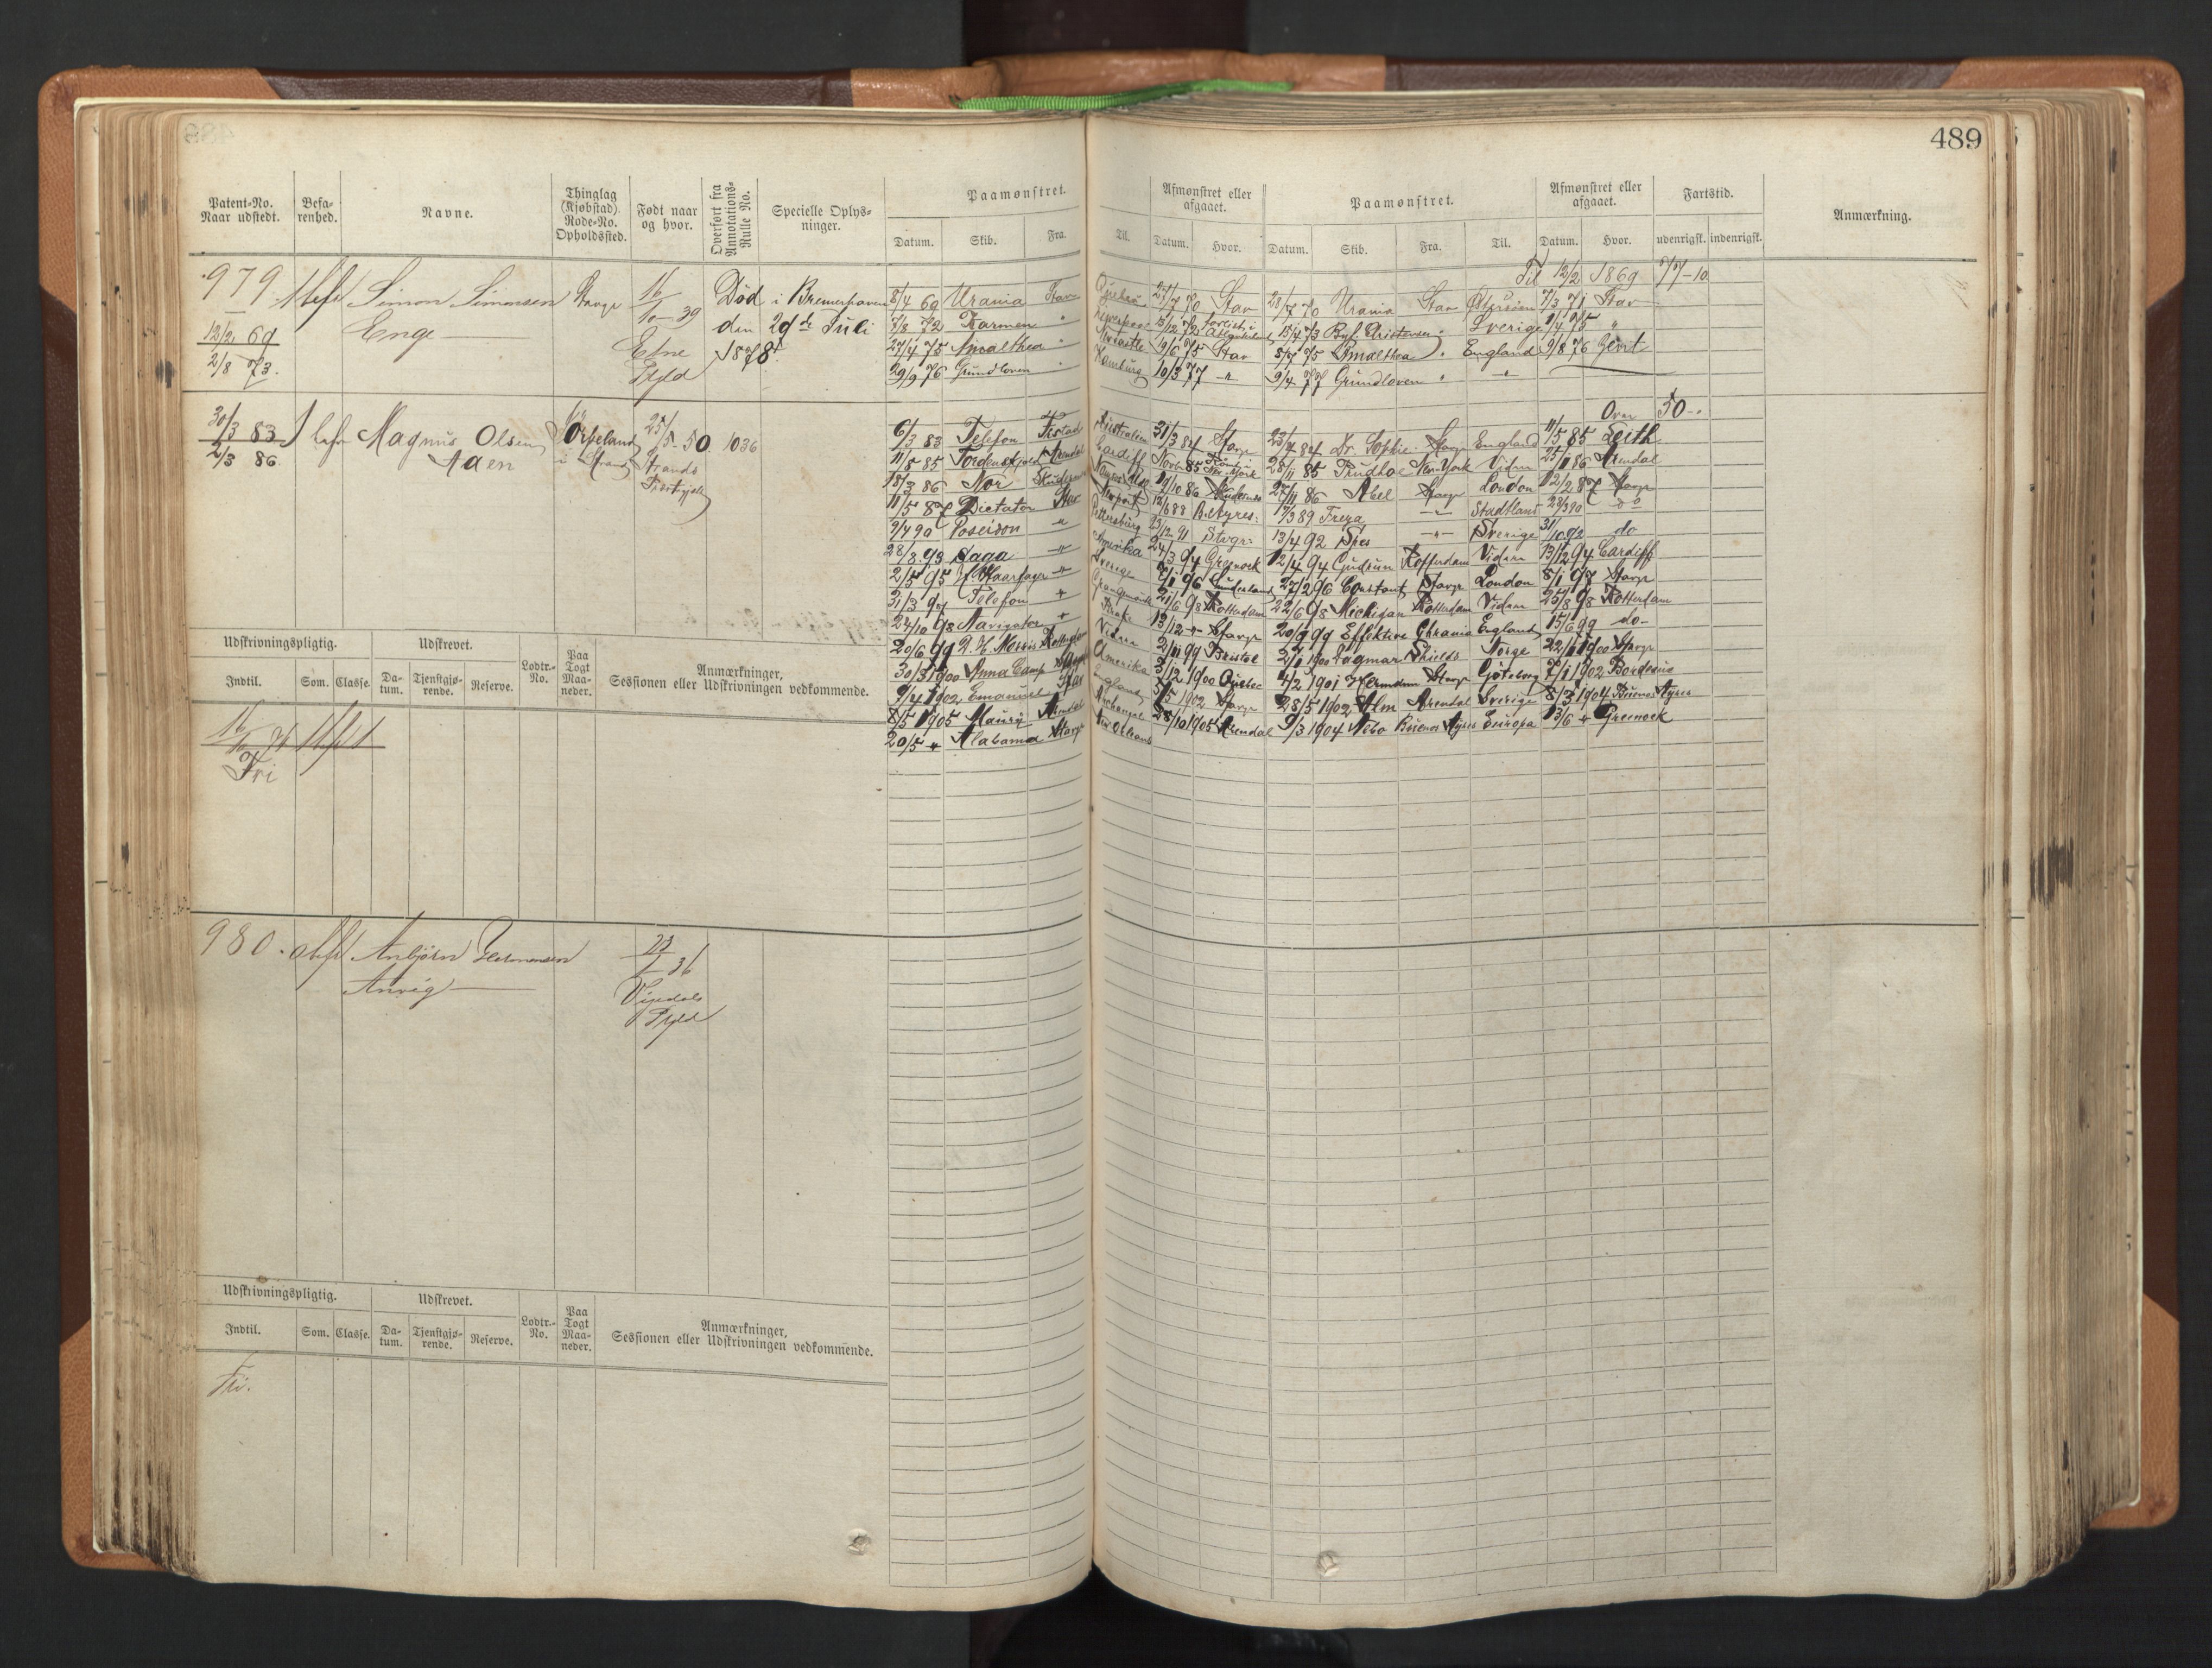 489
Patent-No. Naar udstedt. Befarenhed. Navne. Thinglag (Kjøbstad) Rode-No. Opholdssted. Født naar og hvor. Overført fra Annotations-Rulle No. Specielle Oplysninger. Paamønstret. Afmønstret eller afgaaet. Paamønstret. Afmønstret eller afgaaet. Fartstid. Anmærkning.
Datum. Skib. Fra. Til. Datum. Hvor. Datum. Skib. Fra. Til. Datum. Hvor. udenrigsk. indenrigsk.
Til 12/2 1869 77-10
979. Simon Simonsen Enge Stavgr 16/10 39 Etne Pgld
12/2 69
2/8 73.
Død i Bremerhaven den 29de Juli 1878.
8/4 69 Urania Stav 27/7 70 Stav 28/7 70 Urania Stav Østersøen 7/3 71 Stav
7/8 72 Karmen " 15/4 73 Sverige 9/4 75 "
27/4 75 Amalthea " Newcastle 19/6 75 Stav 8/7 75 Amalthea " England 9/8 76 Gent
29/9 76 Grundloven " Hamburg 10/3 77 " 9/4 77 Grundloven " "
Over 50-"
30/3 83 2/3 86 Magnus Olsen Aaen Jörpeland i Strand 25/5-50 Strands 1036
6/3 83 Telefon Australien 31/3 84 Stavgr 23/4 84 Dr. Sophie Stavgr England 11/5 85 Leith
11/8 85 Tordenskjold Arendal Cardiff Novb. 85 New York 28/11 85 Trudhoe New-York Viden 25/1 86 Arendal
18/3 86 Nor 19/10 86 Skudesnes 27/11 86 Abel Stavgr London 12/2 87 Stavgr
11/5 87 Dictator Stav Newport 12/6 88 B. Ayres: 17/3 89 Freya -"- Stadtland 28/3 90 do
9/4 90 Poseidon " Petersburg 23/12 91 Stvgr: 13/4 92 Spes -"- Sverige 31/10 92 do
28/8 93 Saga " Amerika 24/3 94 Greenock 12/4 94 Gudrun Rotterdam Viden 13/12 94 Cardiff
2/5 95 H. Haarfagr " Sverige 7/1 96 Sunderland 27/2 96 Constant Stavgr London 8/1 97 Stavgr
31/3 97 Telefon " Grangemouth 21/6 98 Rotterdam 22/6 98 Michigan Rotterdam Viden 25/8 98 Rotterdam
24/10 98 Navigator " 13/12 " Stavgr 20/3 99 Effektive Chrania England 15/6 99 do-
20/6 99 Morris Viden 2/11 99 Bristol 2/1 1900 Dagmar Shields Norge 22/1 1900 Stavgr
30/3 1900 Anna Camp Stavgr Amerika 3/12 1900 Quebec 4/2 1901 Stavgr Göteborg 7/1 1902 Bordeaux
9/4 1902 Emanuel England 5/5 1902 Stavgr 28/5 1902 Alm Arendal Sverige 8/3 1904 Buenos Ayres
8/5 1905 Maury Arendal Archangel 28/10 1905 Arendal 9/3 1904 Nebo Buenos Ayres Europa 13/6 " Greenock
20/5 " Alabama Stavgr New Orleans
Udskrivningspligtig. Udskrevet. Lodtr.-No. Paa Togt Maaneder. Anmærkninger, Sessionen eller Udskrivningen vedkommende.
Indtil. Som. Classe. Datum. Tjenstgjørende. Reserve.
Fri
980. Anbjörn Hermansen Anvig 36 Pgld
Udskrivningspligtig. Udskrevet. Lodtr.-No. Paa Togt Maaneder. Anmærkninger, Sessionen eller Udskrivningen vedkommende.
Indtil. Som. Classe. Datum. Tjenstgjørende. Reserve.
Fri.